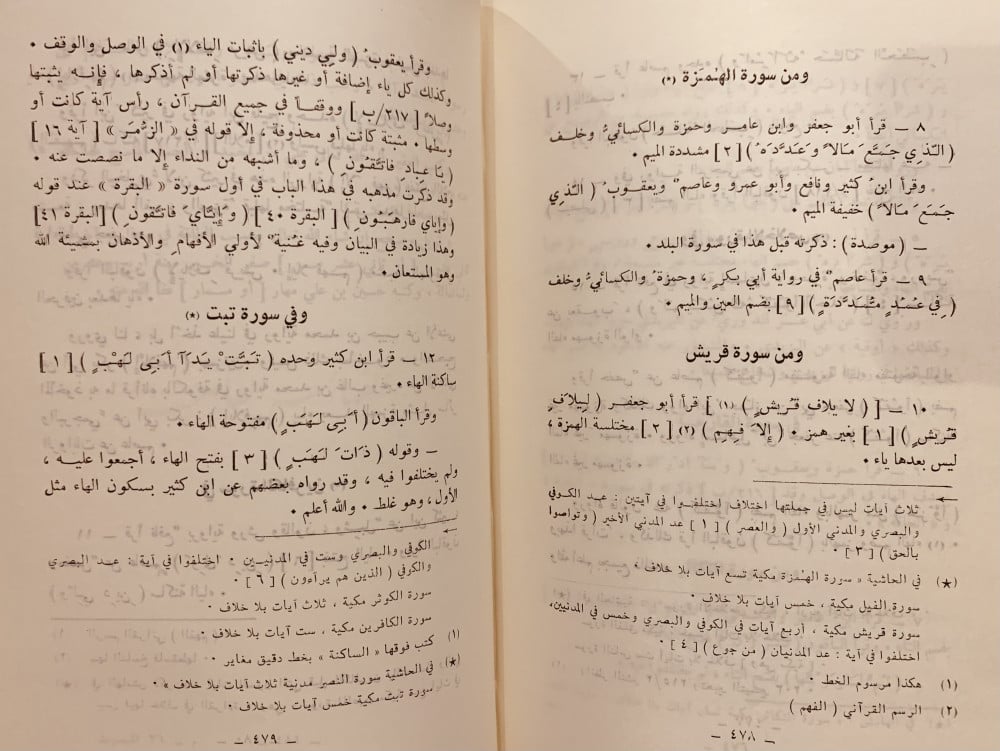 ومن سورة الهُمَزة (*)
٨ ــ قرأ أبو جعفر وابن عامرٍ وحمزة والكسائيُّ وخلف
( الَّذِي جَمَّعَ مَالاً وَعَدَّدَهُ ) [ ٢ ] مشددة الميم ٠
وقرأ ابنُ كثير ونافع وأبو عمرو وعاصمٌ ويعقوبُ ( الَّذِي
جَمَعَ مَالاً ) خفيفة الميم ٠
ــ ( موصدة ) : ذكرته قبل هذا في سورة البلد ٠
٩ ــ قرأ عاصمٌ في رواية أبي بكرٍ ، وحمزةُ والكسائيُّ وخلف
( فِي عُمُدٍ مُمَدَّدَةٍ ) [ ٩ ] بضم العين والميم ٠
ومن سورة قريش
١٠ ــ [ ( لا يلاف قُرَيشٍ ) (١) ] قرأ أبو جعفر ( لِيلاَفِ
قُرَيشٍ ) [ ١ ] بغير همز ٠ ( إِلاَ فِهِم ) (٢) [ ٢ ] مختلسة الهمزة ،
ليس بعدها ياء ٠
ثلاث آيات ليس في جملتها اختلاف اختلفوا في آيتين : عد الكوفي
والبصري والمدني الأول ( والعصر ) [ ١ ] عد المدني الأخير ( وتواصوا
بالحق ) [ ٣ ] ٠
(*) في الحاشية « سورة الهُمَزة مكية تسع آيات بلا خلاف ٠
سورة الفيل مكية ، خمس آيات بلا خلاف ٠
سورة قريش مكية ، أربع آيات في الكوفي والبصري وخمس في المدنيين،
اختلفوا في آية : عد المدنيان ( من جوع ) [ ٤ ] ٠
(١) هكذا مرسوم الخط ٠
(٢) الرسم القرآني ( الفهم )
ــ ٤٧٨ ــ
وقرأ يعقوبُ ( ولِي ديني ) باثبات الياء (١) في الوصل والوقف ٠
وكذلك كل ياء إضافة أو غيرها ذكرتها أو لم أذكرها ، فإنه يثبتها
وصلاً [ ٢١٧/ب ] ووقفاً في جميع القرآن ، رأس آية كانت أو
وسطها ٠ مثبتة كانت أو محذوفة ، إلا قوله في « الزُّمَر » [ آية ١٦ ]
( يَا عِبادِ فاتَّقُونِ ) ، وما أشبهه من النداء إلا ما نصصت عنه ٠
وقد ذكرت مذهبه في هذا الباب في أول سورة « البقرة » عند قوله
( وإياي فارهَبُونِ ) [ البقرة ٤٠ ] ( وَإِيَّايَ فاتَّقونِ ) [البقرة ٤١]
وهذا زيادة في البيان وفيه غُنيةٌ لأولي الأفهامِ والأذهان بمشيئة الله
وهو المستعان ٠
وفي سورة تبت (*)
١٢ ــ قرأ ابن كثير وحده ( تَبَّتْ يَدَآ أَبِى لَهْبٍ ) [ ١ ]
ساكنة الهاء ٠
وقرأ الباقون ( أَبِى لَهَبٍ ) مفتوحة الهاء ٠
ــ وقوله ( ذَاتَ لَهَبٍ ) [ ٣ ] بفتح الهاء ، أجمَعوا عليه ،
ولم يختلفوا فيه ، وقد رواه بعضهم عن ابن كثير بسكون الهاء مثل
الأول، وهو غلط ٠ والله أعلم ٠
الكوفي والبصري وست في المدنيين ٠ اختلفوا في آية : عد البصري
والكوفي ( الذين هم يرآءون ) [ ٦ ] ٠
سورة الكوثر مكية ، ثلاث آيات بلا خلاف ٠
سورة الكافرين مكية ، ست آيات بلا خلاف ٠
(١) كتب فوقها « الساكنة » بخط دقيق مغاير ٠
(*) في الحاشية سورة النصر مدنية ثلاث آيات بلا خلاف» ٠
سورة تبت مكية خمس آيات بلا خلاف ٠
ــ ٤٧٩ ــ